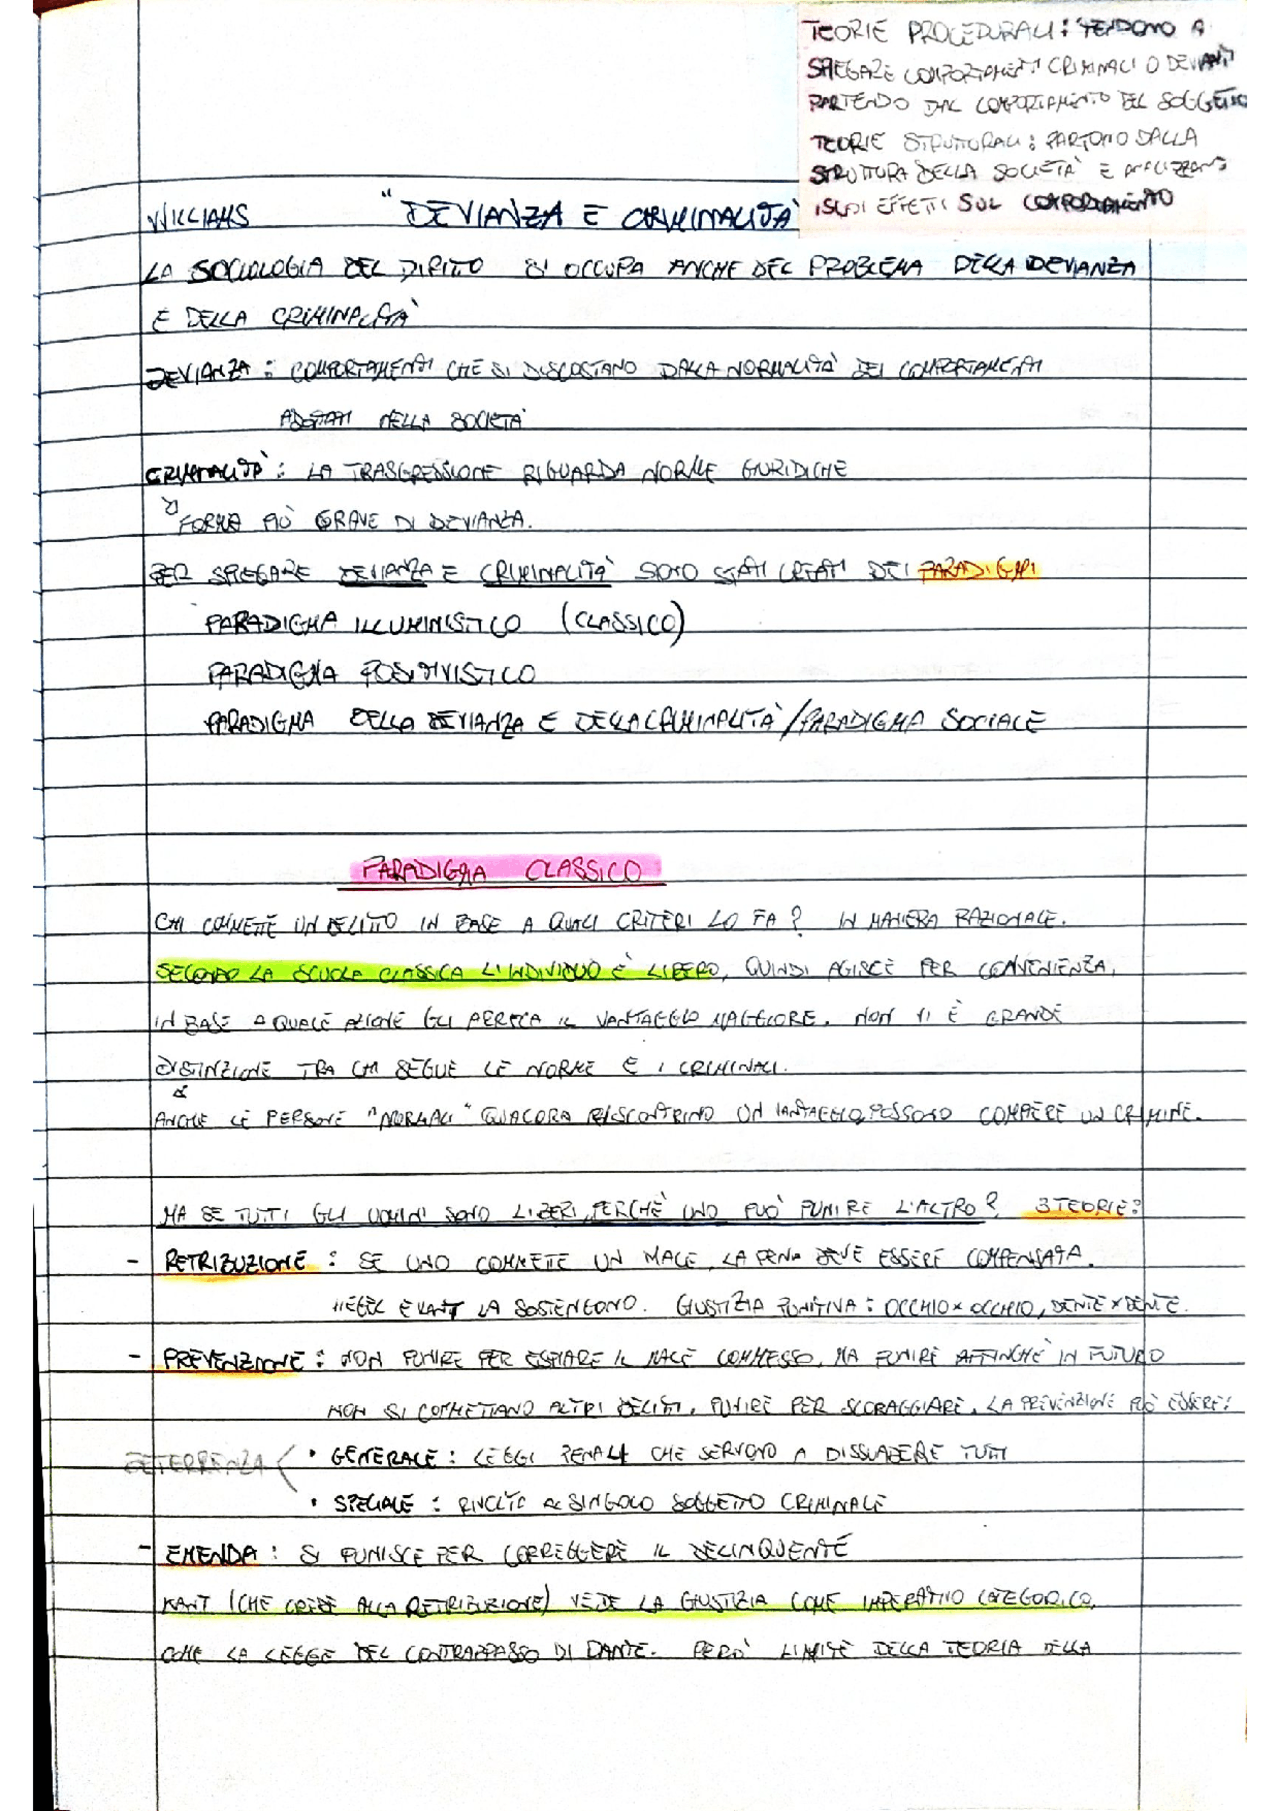 TEORIE PROCEDURALI: TENDONO A
SPIEGARE COMPORTAMENTI CRIMINALI O DEVIANTI
PARTENDO DAL COMPORTAMENTO DEL SOGGETTO
TEORIE STRUTTURALI: PARTONO DALLA
STRUTTURA DELLA SOCIETÀ E ANALIZZANO
I SUOI EFFETTI SUL COMPORTAMENTO
WILLIAMS "DEVIANZA E CRIMINALITÀ
LA SOCIOLOGIA DEL DIRITTO SI OCCUPA ANCHE DEL PROBLEMA DELLA DEVIANZA
E DELLA CRIMINALITÀ
DEVIANZA: COMPORTAMENTI CHE SI DISCOSTANO DALLA NORMALITÀ DEI COMPORTAMENTI
ADOTTATI NELLA SOCIETÀ
CRIMINALITÀ: LA TRASGRESSIONE RIGUARDA NORME GIURIDICHE
FORMA PIÙ GRAVE DI DEVIANZA.
PER SPIEGARE DEVIANZA E CRIMINALITÀ SONO STATI CREATI DEI PARADIGMI
PARADIGMA ILLUMINISTICO (CLASSICO)
PARADIGMA POSITIVISTICO
PARADIGMA DELLA DEVIANZA E DELLA CRIMINALITÀ/PARADIGMA SOCIALE
PARADIGMA CLASSICO
CHI COMMETTE UN DELITTO IN BASE A QUALI CRITERI LO FA? IN MANIERA RAZIONALE.
SECONDO LA SCUOLA CLASSICA L'INDIVIDUO È LIBERO, QUINDI AGISCE PER CONVENIENZA,
IN BASE A QUALE AZIONE GLI ARRECA IL VANTAGGIO MAGGIORE. NON VI È GRANDE
DISTINZIONE TRA CHI SEGUE LE NORME E I CRIMINALI.
ANCHE LE PERSONE "NORMALI" QUALORA RISCONTRINO UN VANTAGGIO, POSSONO COMPIERE UN CRIMINE.
MA SE TUTTI GLI UOMINI SONO LIBERI, PERCHÈ UNO PUÒ PUNIRE L'ALTRO? 3 TEORIE:
- RETRIBUZIONE: SE UNO COMMETTE UN MALE, LA PENA DEVE ESSERE COMPENSATA.
HEGEL E KANT LA SOSTENGONO. GIUSTIZIA PUNITIVA: OCCHIO x OCCHIO, DENTE x DENTE.
- PREVENZIONE: NON PUNIRE PER ESPIARE IL MALE COMMESSO, MA PUNIRE AFFINCHÈ IN FUTURO
NON SI COMMETTANO ALTRI DELITTI, PUNIRE PER SCORAGGIARE. LA PREVENZIONE PUÒ ESSERE:
DETERRENZA • GENERALE: LEGGI PENALI CHE SERVONO A DISSUADERE TUTTI
• SPECIALE: RIVOLTA AL SINGOLO SOGGETTO CRIMINALE
- EMENDA: SI PUNISCE PER CORREGGERE IL DELINQUENTE
KANT (CHE CREDE ALLA RETRIBUZIONE) VEDE LA GIUSTIZIA COME IMPERATIVO CATEGORICO,
COME LA LEGGE DEL CONTRAPPASSO DI DANTE. PERÒ LIMITE DELLA TEORIA DELLA